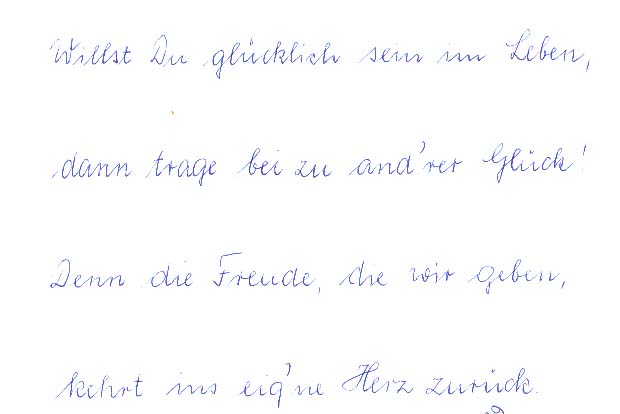 Willst Du glücklich sein im Leben,
dann trage bei zu and'rer Glück!
Denn die Freude, die wir geben,
kehrt ins eig'ne Herz zurück.